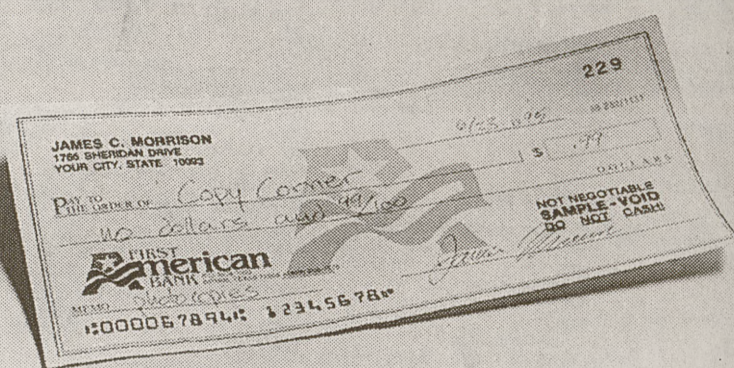 229
JAMES C. MORRISON
1765 SHERIDAN DRIVE
YOUR CITY, STATE 10093
6/23 1995
PAY TO THE ORDER OF Copy Corner $ .99
no dollars and 99/100 DOLLARS
NOT NEGOTIABLE
SAMPLE - VOID
DO NOT CASH!
FIRST
American
BANK
MEMO photocopies James Morrison
⑆000067894⑆ 12345678⑈